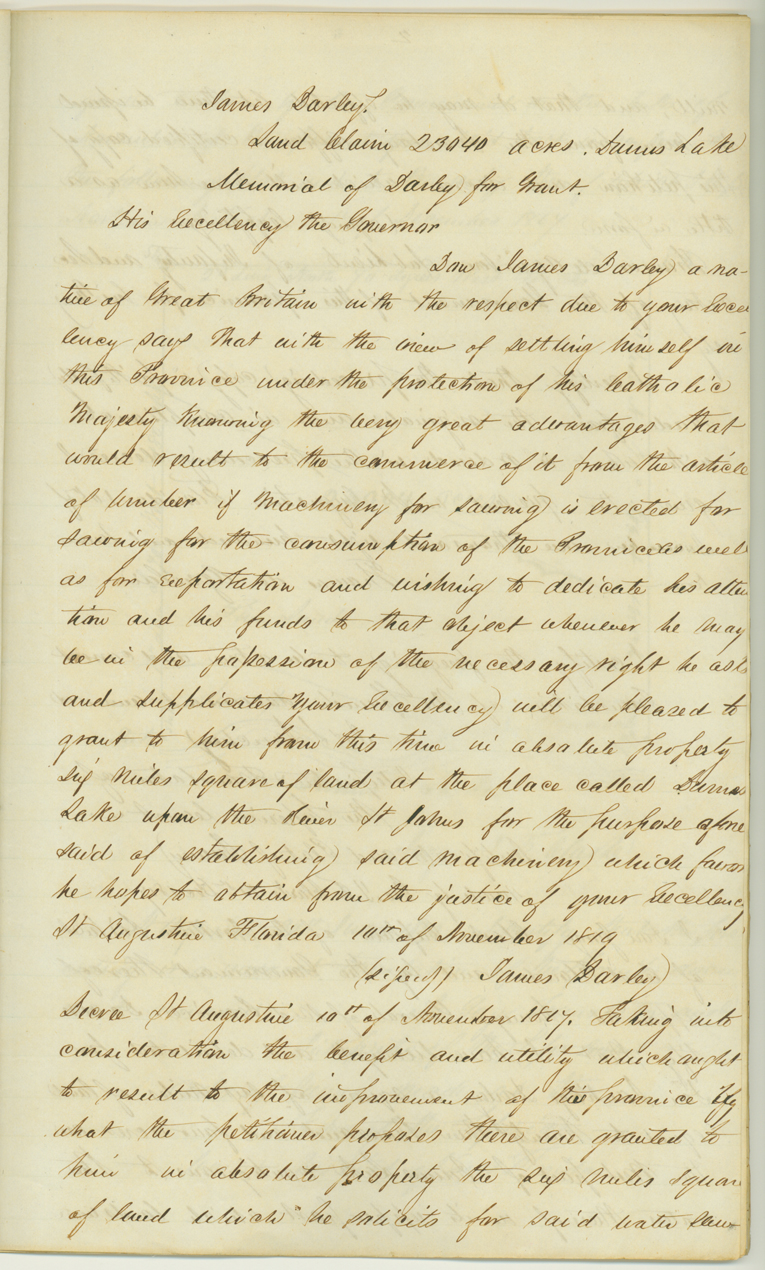 James Darley.
Land Claim 23040 acres. Dunns Lake
Memorial of Darley for Grant.
His Excellency the Governor
Don James Darley a na-
tive of Great Britain with the respect due to your Excel
lency says that with the view of settling himself in
this Province under the protection of his Catholic
Majesty knowing the very great advantages that
would result to the commerce of it from the article
of lumber if Machinery for sawing is erected for
sawing for the consumption of the Province as well
as for exportation and wishing to dedicate his atten
tion and his funds to that object whenever he may
be in the possession of the necessary right he asks
and supplicates Your Excellency will be pleased to
grant to him from this time in absolute property
six miles square of land at the place called Dunns
Lake upon the River St Johns for the purpose afore
said of establishing said machinery which favor
he hopes to obtain from the justice of your Excellency
St Augustine Florida 10th of November 1819
(Signed) James Darley
Decree St Augustine 10th of November 1817. Taking into
consideration the benefit and utility which ought
to result to the improvement of this province by
what the petitioner proposes there are granted to
him in absolute property the six miles square
of land which he solicits for said water saw